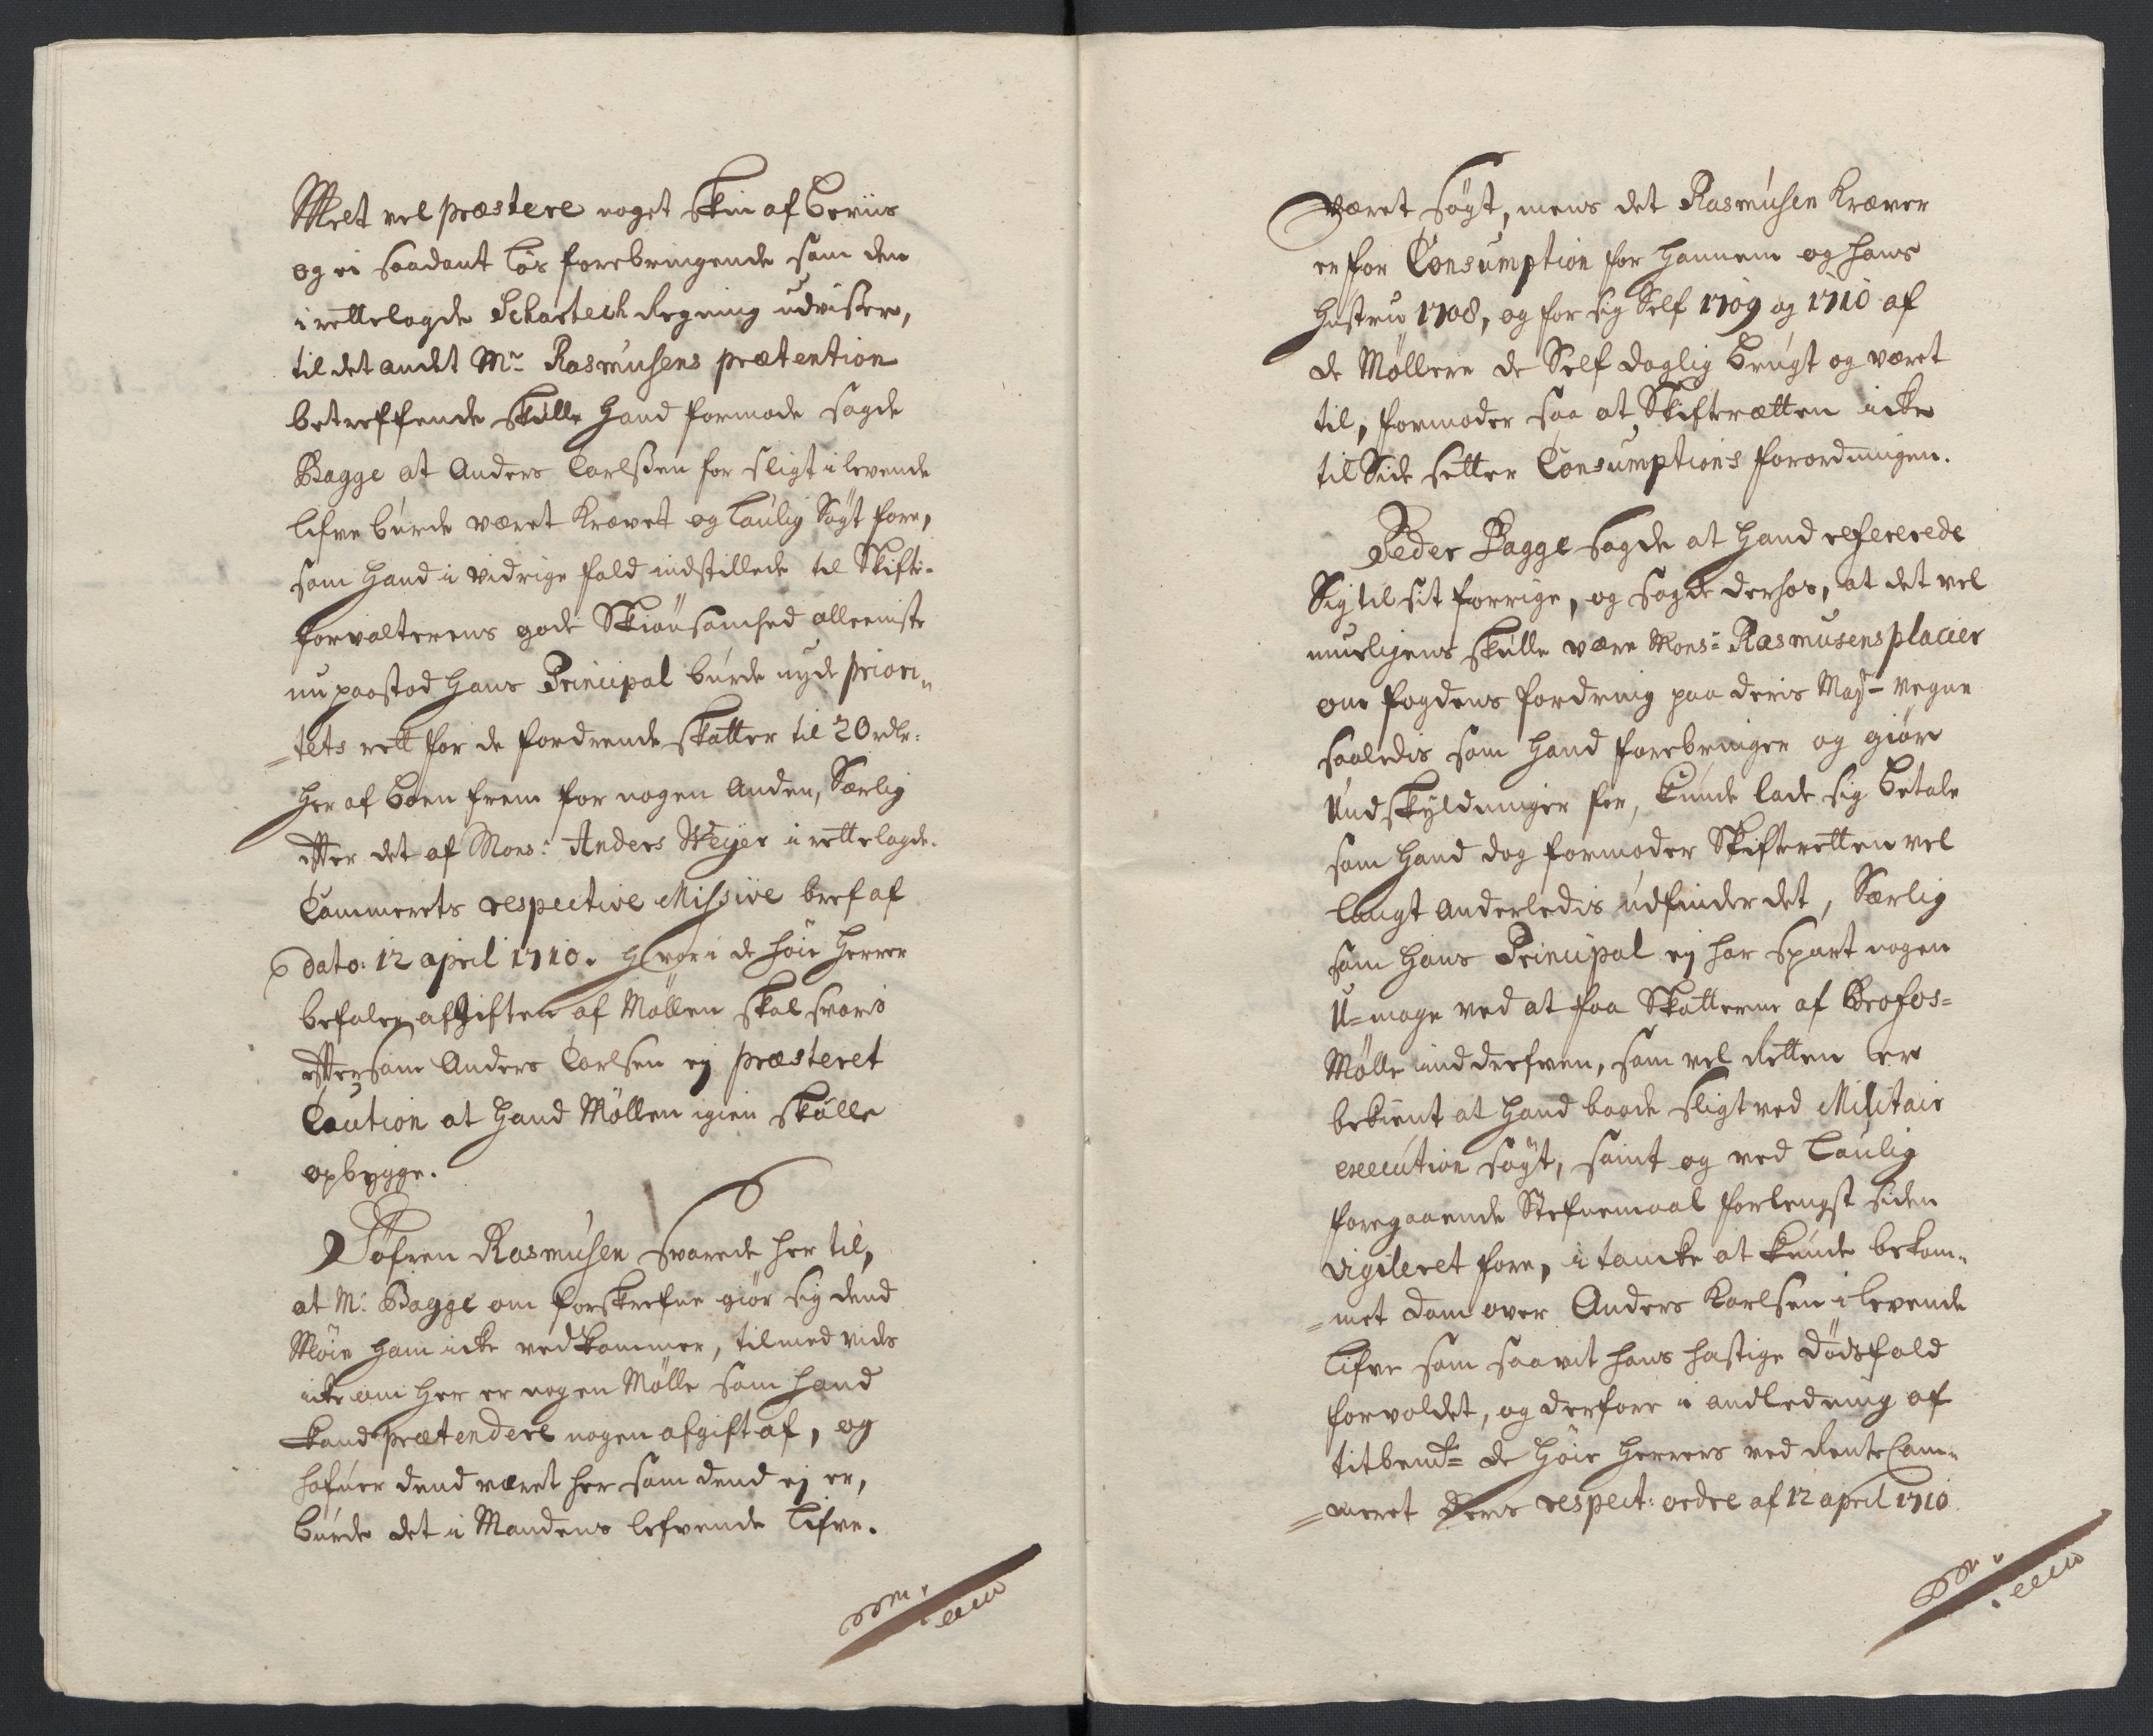 Met vel præstere noget skin af beviis
og ei saadant løs forebringende som den
i rettelagde Schartech Regning udvisser,
til det andet Mr Rasmusens prætention
betreffende skulle hand formode sagde
Bagge at Anders Carlssen for sligt i levende
Lifve burde været krævet og lavlig søgt fore,
som hand i vidrige fald indstillede til Skifte-
forvalterens gode Skiønsomhed alleeniste
nu paastod hans Principal burde nyde priori„
„tets rett for de fordrende skatter til 20 rdlr:
her af boen frem for nogen anden, Særlig
efter det af Mons: Anders Weyer i rettelagde
Cammerets respective Missive bref af
dato: 12 april 1710. Hvor i de høie Herrer
befaler afgiften af Møllen skal svaris
eftersom Anders Carlsen ej præsteret
Caution at hand Møllen igien skulle
opbygge.
Søfren Rasmusen svarede her til,
at Mr Bagge om forskrefne giør sig dend
Møie ham icke vedkommer, tilmed vides
icke om her er nogen Mølle som hand
kand prætendere nogen afgift af, og
hafuer dend været her som dend ej er,
burde det i Mandens lefvende Lifve.
været søgt, mens det Rasmusen Kræver
er for Consumption for hannem og hans
hustru 1708, og for sig Self 1709 og 1710 af
de Møllere de Self daglig brugt og været
til, formoder saa at Skifteretten icke
til Side setter Consumptions forordningen.
Peder Bagge sagde at hand refererede
Sig til sit forrige, og sagde derhos, at det vel
mueligens skulle være Mons: Rasmusens placier
om fogdens fordring paa deris Mayts Vegne
saaledis som hand forebringer og giør
Undskyldninger for, kunde lade sig betale
som hand dog formoder Skifteretten vel
langt anderledis udfinder det, Særlig
som hans Principal ej har spart nogen
U-mage ved at faa Skatterne af Brofos-
Mølle inddrefven, som vel Retten er
bekient at hand baade sligt ved Militair
execution søgt, samt og ved Lavlig
foregaaende Stefnemaal forlengst siden
vigileret fore, i tancke at kunde bekom„
„met dom over Anders Karlsen i levende
Lifve som saavit hans hastige Dødsfald
forvoldet, og derfore i andledning af
titbemte de høie Herrers ved Rente Cam„
„meret deres respect: ordre af 12 april 1710